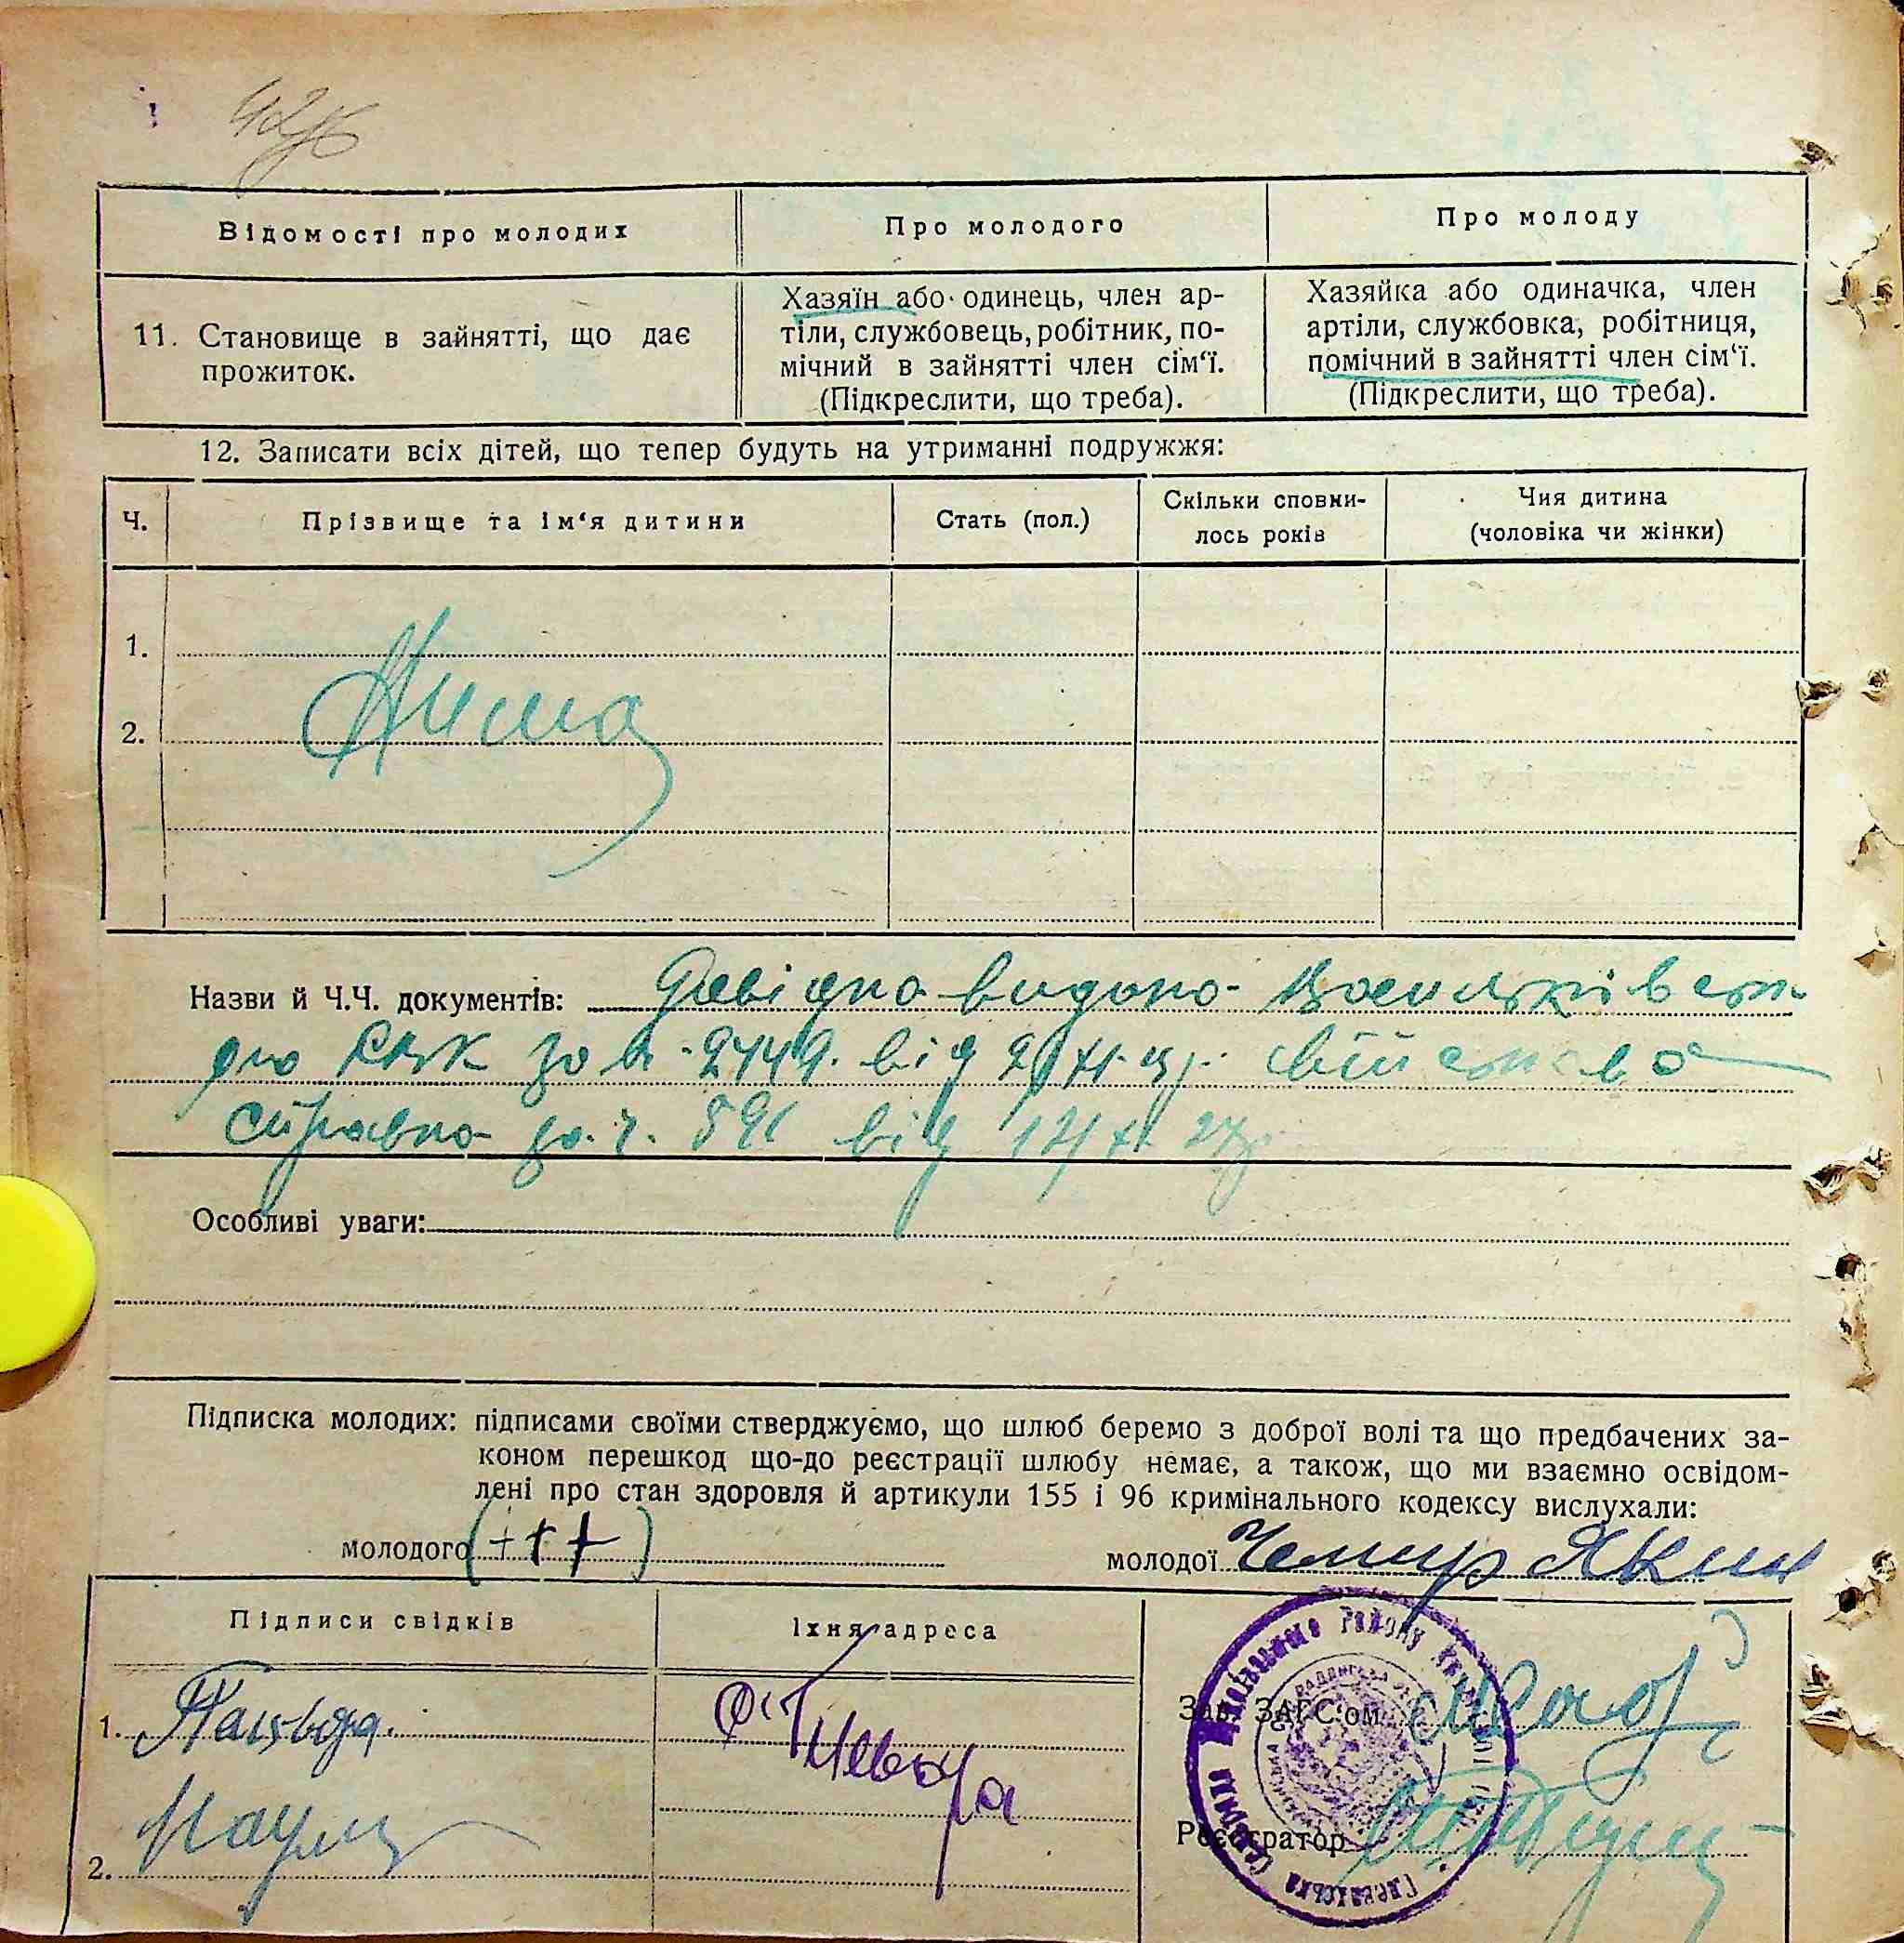 Відомості про молодих
Про молодого
Про молоду
11. Становище в зайнятті, що дає
прожиток.
Хазяїн або одинець, член ар-
тіли, службовець, робітник, по-
мічний в зайнятті член сім‘ї.
(Підкреслити, що треба).
Хазяйка або одиначка, член
артіли, службовка, робітниця,
помічний в зайнятті член сім‘ї.
(Підкреслити, що треба).
12. Записати всіх дітей, що тепер будуть на утриманні подружжя:
Ч.
Прізвище та ім‘я дитини
Стать (пол.)
Скільки сповни-
лось років
Чия дитина
(чоловіка чи жінки)
1.
Нима
2.
Назви й Ч.Ч. документів: видана
від
справка за ч. від
Особливі уваги:
Підписка молодих: підписами своїми стверджуємо, що шлюб беремо з доброї волі та що предбачених за-
коном перешкод що-до реєстрації шлюбу немає, а також, що ми взаємно освідом-
лені про стан здоровля й артикули 155 і 96 кримінального кодексу вислухали:
молодого (+++)
молодої Чемир Яким
Підписи свідків
Їхня адреса
1.
2.
Зав. ЗАГС‘ом
Реєстратор